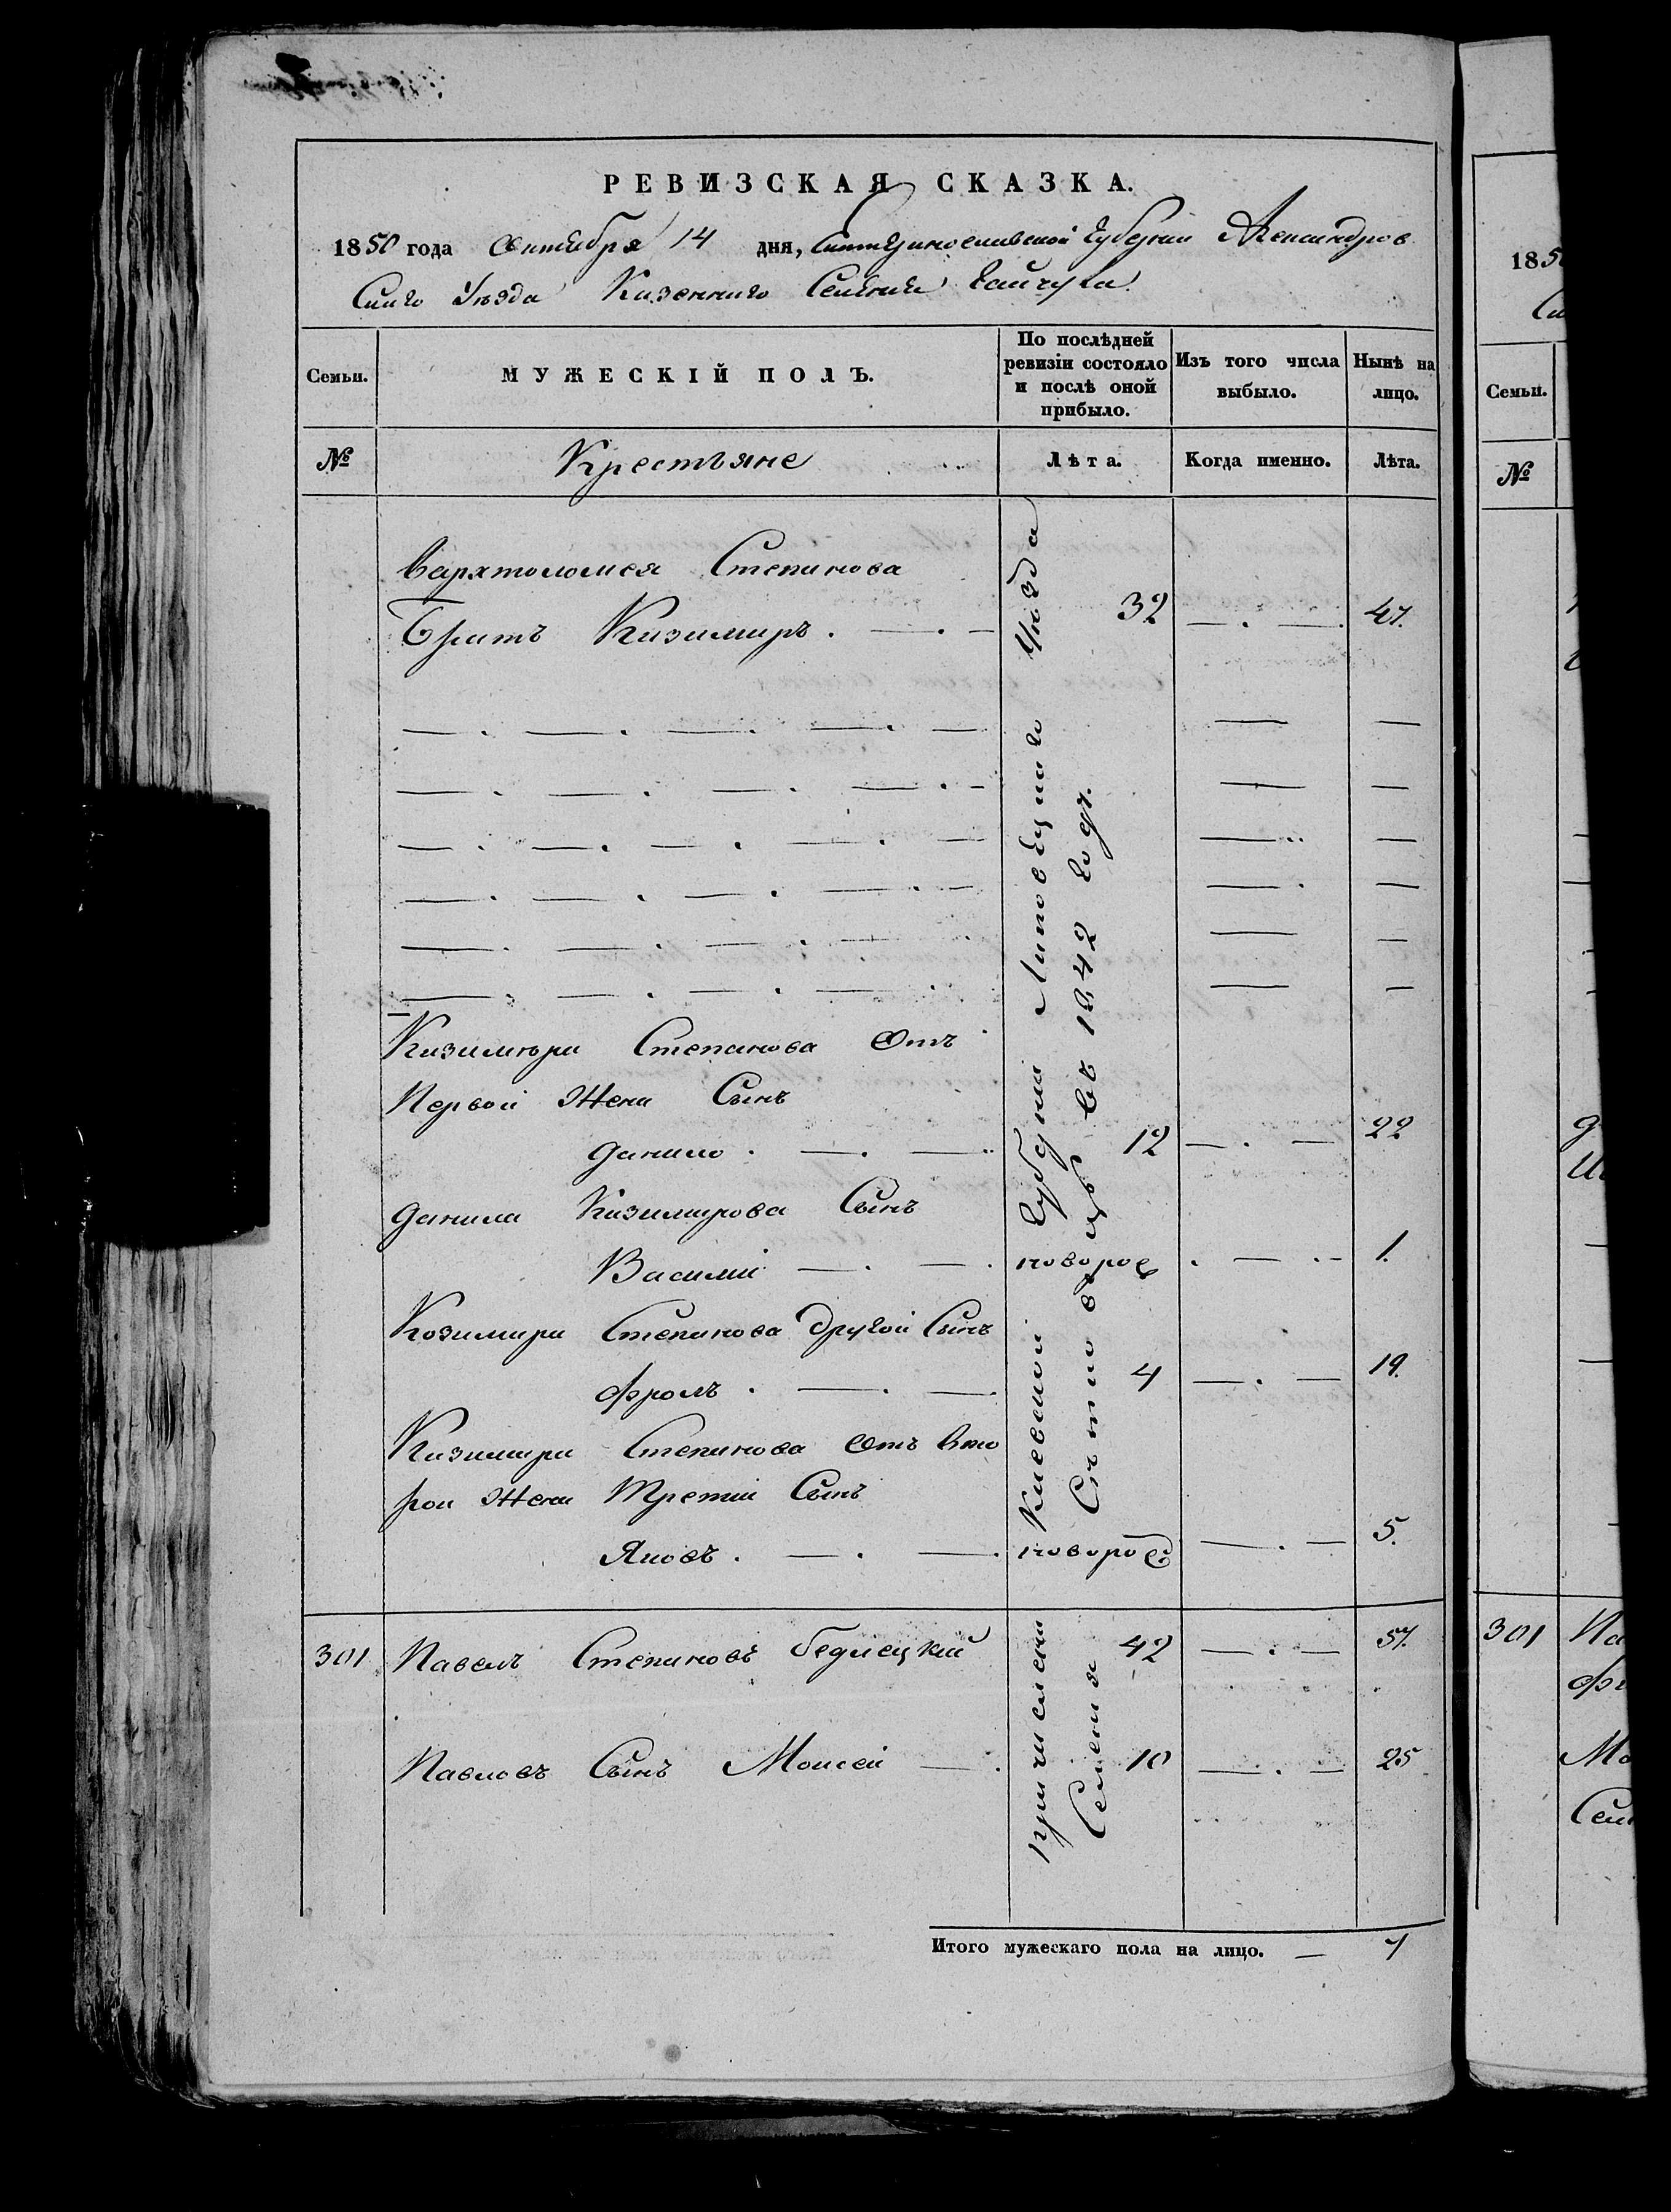 РЕВИЗСКАЯ СКАЗКА.
1850 года Сентября 14 дня, Екатеринославской Губернии Александров
скаго Уѣзда Казеннаго Селения Гайчула
Семьи.
МУЖЕСКІЙ ПОЛЪ.
По послѣдней ревизіи состояло и послѣ оной прибыло.
Изъ того числа выбыло.
Нынѣ на лицо.
№
Крестьяне
Лѣта.
Когда именно.
Лѣта.
Вархтоломея Степанова
Братъ Казимиръ. 32 47.
Казимира Степанова Отъ
Первой Жены Сынъ
Данило. 12 22
Данила Казимирова Сынъ
Василий новорож 1.
Козимира Степанова другой Сынъ
Фролъ. 4 19.
Казимира Степанова Отъ вто
рои Жены Третий Сынъ
Яковъ. новорож 5.
301 Павелъ Степановъ 42 57.
Павловъ Сынъ Моисей 10 25
причислены Киевской Губернии Липовецкаго Уѣзда
Семения въ 1842 году.
Итого мужескаго пола на лицо. — 7
1850
Семьи.
№
301